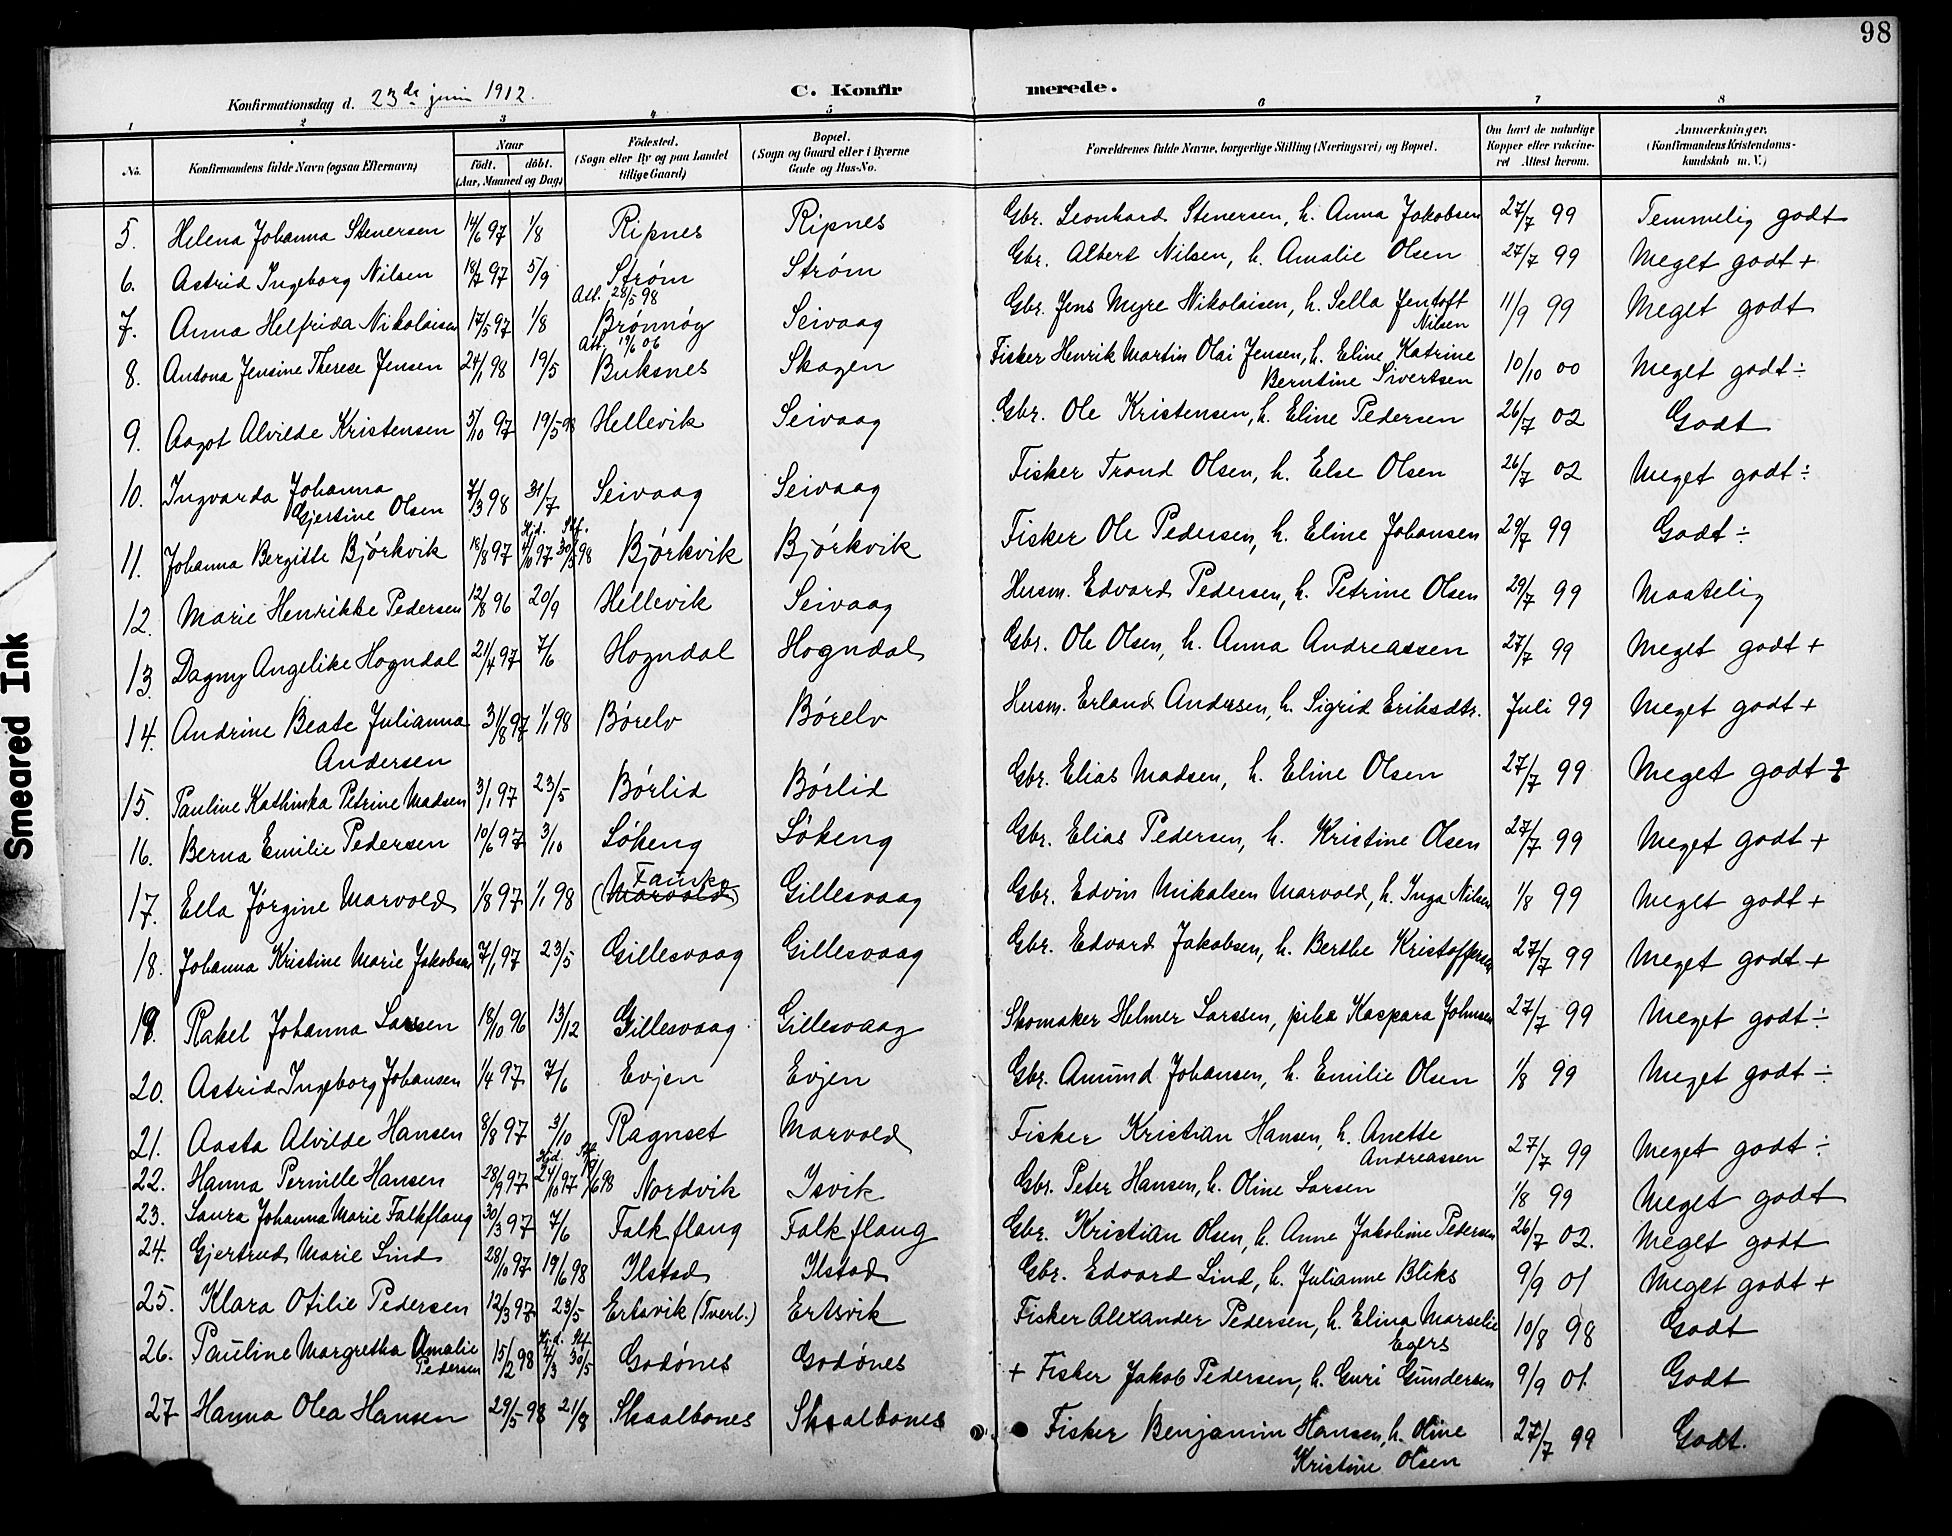 98
Konfirmationsdag d. 23de juni 1912.
C. Konfirmerede.
1 2 3 4 5 6 7 8
No. Konfirmandens fulde Navn (ogsaa Efternavn) Naar Födt. döbt. (Aar, Maaned og Dag) Födested. (Sogn eller By og paa Landet tillige Gaard) Bopæl. (Sogn og Gaard eller i Byerne Gade og Hus-No. Forældrenes fulde Navne, borgerlige Stilling (Næringsvei) og Bopæl. Om havt de naturlige Kopper eller vakcineret Attest herom. Anmærkninger. (Konfirmandens Kristendomskundskab m. V.)
5. Helena Johanna Stenersen 14/6 97 1/8 Ripnes Ripnes Gbr. Leonhard Stenersen, h. Anna Jakobsen 27/7 99 Temmelig godt
6. Astrid Ingeborg Nilsen 18/7 97 5/9 Strøm Strøm Gbr. Albert Nilsen, h. Amalie Olsen 27/7 99 Meget godt +
Att. 28/5 98
7. Anna Helfrida Nikolaisen 17/5 97 1/8 Brønnøy Seivaag Gbr. Jens Myre Nikolaisen, h. Sella Jentoft Nilsen 11/9 99 Meget godt
Att. 19/6 06
8. Antona Jensine Therese Jensen 24/1 98 19/5 Buksnes Skagen Fisker Henrik Martin Olai Jensen, h. Eline Katrine Berntine Sivertsen 10/10 00 Meget godt ÷
9. Aagot Alvilde Kristensen 5/10 97 19/5 98 Hellevik Seivaag Gbr. Ole Kristensen, h. Eline Pedersen 26/7 02 Godt
10. Ingvarda Johanna Gjertine Olsen 7/3 98 31/7 Seivaag Seivaag Fisker Trond Olsen, h. Else Olsen 26/7 02 Meget godt ÷
Hjd. Stf.
11. Johanna Bergitte Bjørkvik 18/8 97 4/10 97 30/5 98 Bjørkvik Bjørkvik Fisker Ole Pedersen, h. Eline Johansen 29/7 99 Godt ÷
12. Marie Henrikke Pedersen 12/8 96 20/9 Hellevik Seivaag Husm. Edvard Pedersen, h. Petrine Olsen 29/7 99 Maatelig
13. Dagny Angelike Hogndal 21/4 97 7/6 Hogndal Hogndal Gbr. Ole Olsen, h. Anna Andreassen 27/7 99 Meget godt +
14. Andrine Beate Julianna Andersen 31/8 97 1/1 98 Børelv Børelv Husm. Erland Andersen, h. Sigrid Eriksdtr. Juli 99 Meget godt +
15. Pauline Kathinka Petrine Madsen 3/1 97 23/5 Børlid Børlid Gbr. Elias Madsen, h. Eline Olsen 27/7 99 Meget godt
16. Berna Emilie Pedersen 10/6 97 3/10 Løkeng Løkeng Gbr. Elias Pedersen, h. Kristine Olsen 27/7 99 Meget godt +
17. Ella Jørgine Marvold 1/8 97 1/1 98 Fauske (Marvold) Gillesvaag Gbr. Edvin Mikalsen Marvold, h. Inga Nilsen 1/8 99 Meget godt +
18. Johanna Kristine Marie Jakobsen 7/1 97 23/5 Gillesvaag Gillesvaag Gbr. Edvard Jakobsen, h. Berthe Kristoffersen 27/7 99 Meget godt +
19. Rakel Johanna Larsen 18/10 96 13/12 Gillesvaag Gillesvaag Skomaker Helmer Larssen, pike Kaspara Johnsen 27/7 99 Meget godt ÷
20. Astrid Ingeborg Johansen 1/4 97 7/6 Evjen Evjen Gbr. Amund Johansen, h. Emilie Olsen 1/8 99 Meget godt ÷
21. Aasta Alvilde Hansen 8/8 97 3/10 Ragnset Marvold Fisker Kristian Hansen, h. Anette Andreassen 27/7 99 Meget godt ÷
Hjd. Stf.
22. Hanna Pernille Hansen 28/9 97 24/10 97 19/6 98 Nordvik Isvik Gbr. Peter Hansen, h. Oline Larsen 1/8 99 Meget godt
23. Laura Johanna Marie Falkflaug 30/3 97 7/6 Falkflaug Falkflaug Gbr. Kristian Olsen, h. Anne Jakobine Pedersen 26/7 02. Meget godt
24. Gjertrud Marie Lind 28/10 97 19/6 98 Ilstad Ilstad Gbr. Edvard Lind, h. Julianne Bliks 9/9 01 Meget godt +
25. Klara Otilie Pedersen 12/3 97 23/5 Ertsvik (Tverl.) Ertsvik Fisker Alexander Pedersen, h. Elina Marselie Egers 10/8 98 Godt
Hjd. Stf.
26. Pauline Margretha Amalie Pedersen 15/2 98 4/3 30/5 Godønes Godønes + Fisker Jakob Pedersen, h. Guri Gundersen 9/9 01. Godt
27 Hanna Olea Hansen 29/5 98 21/8 Skaalbones Skaalbones Fisker Benjamin Hansen, h. Oline Kristine Olsen 27/7 99 Godt.
Smeared Ink